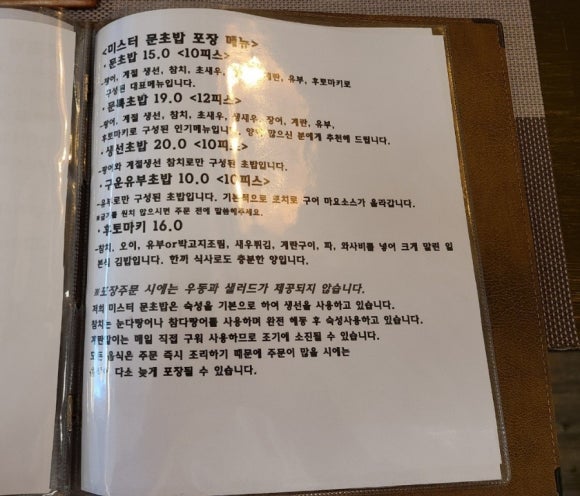 <미스터 문초밥 포장 메뉴>
· 문초밥 15.0 <10피스>
-광어, 계절 생선, 참치, 초새우, 계란, 유부, 후토마키로
구성된 대표메뉴입니다.
· 문특초밥 19.0 <12피스>
-광어, 계절 생선, 참치, 초새우, 생새우, 장어, 계란, 유부,
후토마키로 구성된 인기메뉴입니다. 양이 많으신 분에게 추천해 드립니다.
· 생선초밥 20.0 <10피스>
-광어와 계절생선 참치로만 구성된 초밥입니다.
· 구운유부초밥 10.0 <10피스>
-유부로만 구성된 초밥입니다. 기본적으로 토치로 구어 마요소스가 올라갑니다.
※굽기를 원치 않으시면 주문 전에 말씀해주세요.
· 후토마키 16.0
-참치, 오이, 유부or박고지조림, 새우튀김, 계란구이, 파, 와사비를 넣어 크게 말린 일
본식 김밥입니다. 한끼 식사로도 충분한 양입니다.
※포장주문 시에는 우동과 샐러드가 제공되지 않습니다.
저희 미스터 문초밥은 숙성을 기본으로 하여 생선을 사용하고 있습니다.
참치는 눈다랑어나 참다랑어를 사용하며 완전 해동 후 숙성사용하고 있습니다.
매일 직접 구워 사용하므로 조기에 소진될 수 있습니다.
모든 음식은 주문 즉시 조리하기 때문에 주문이 많을 시에는
다소 늦게 포장될 수 있습니다.